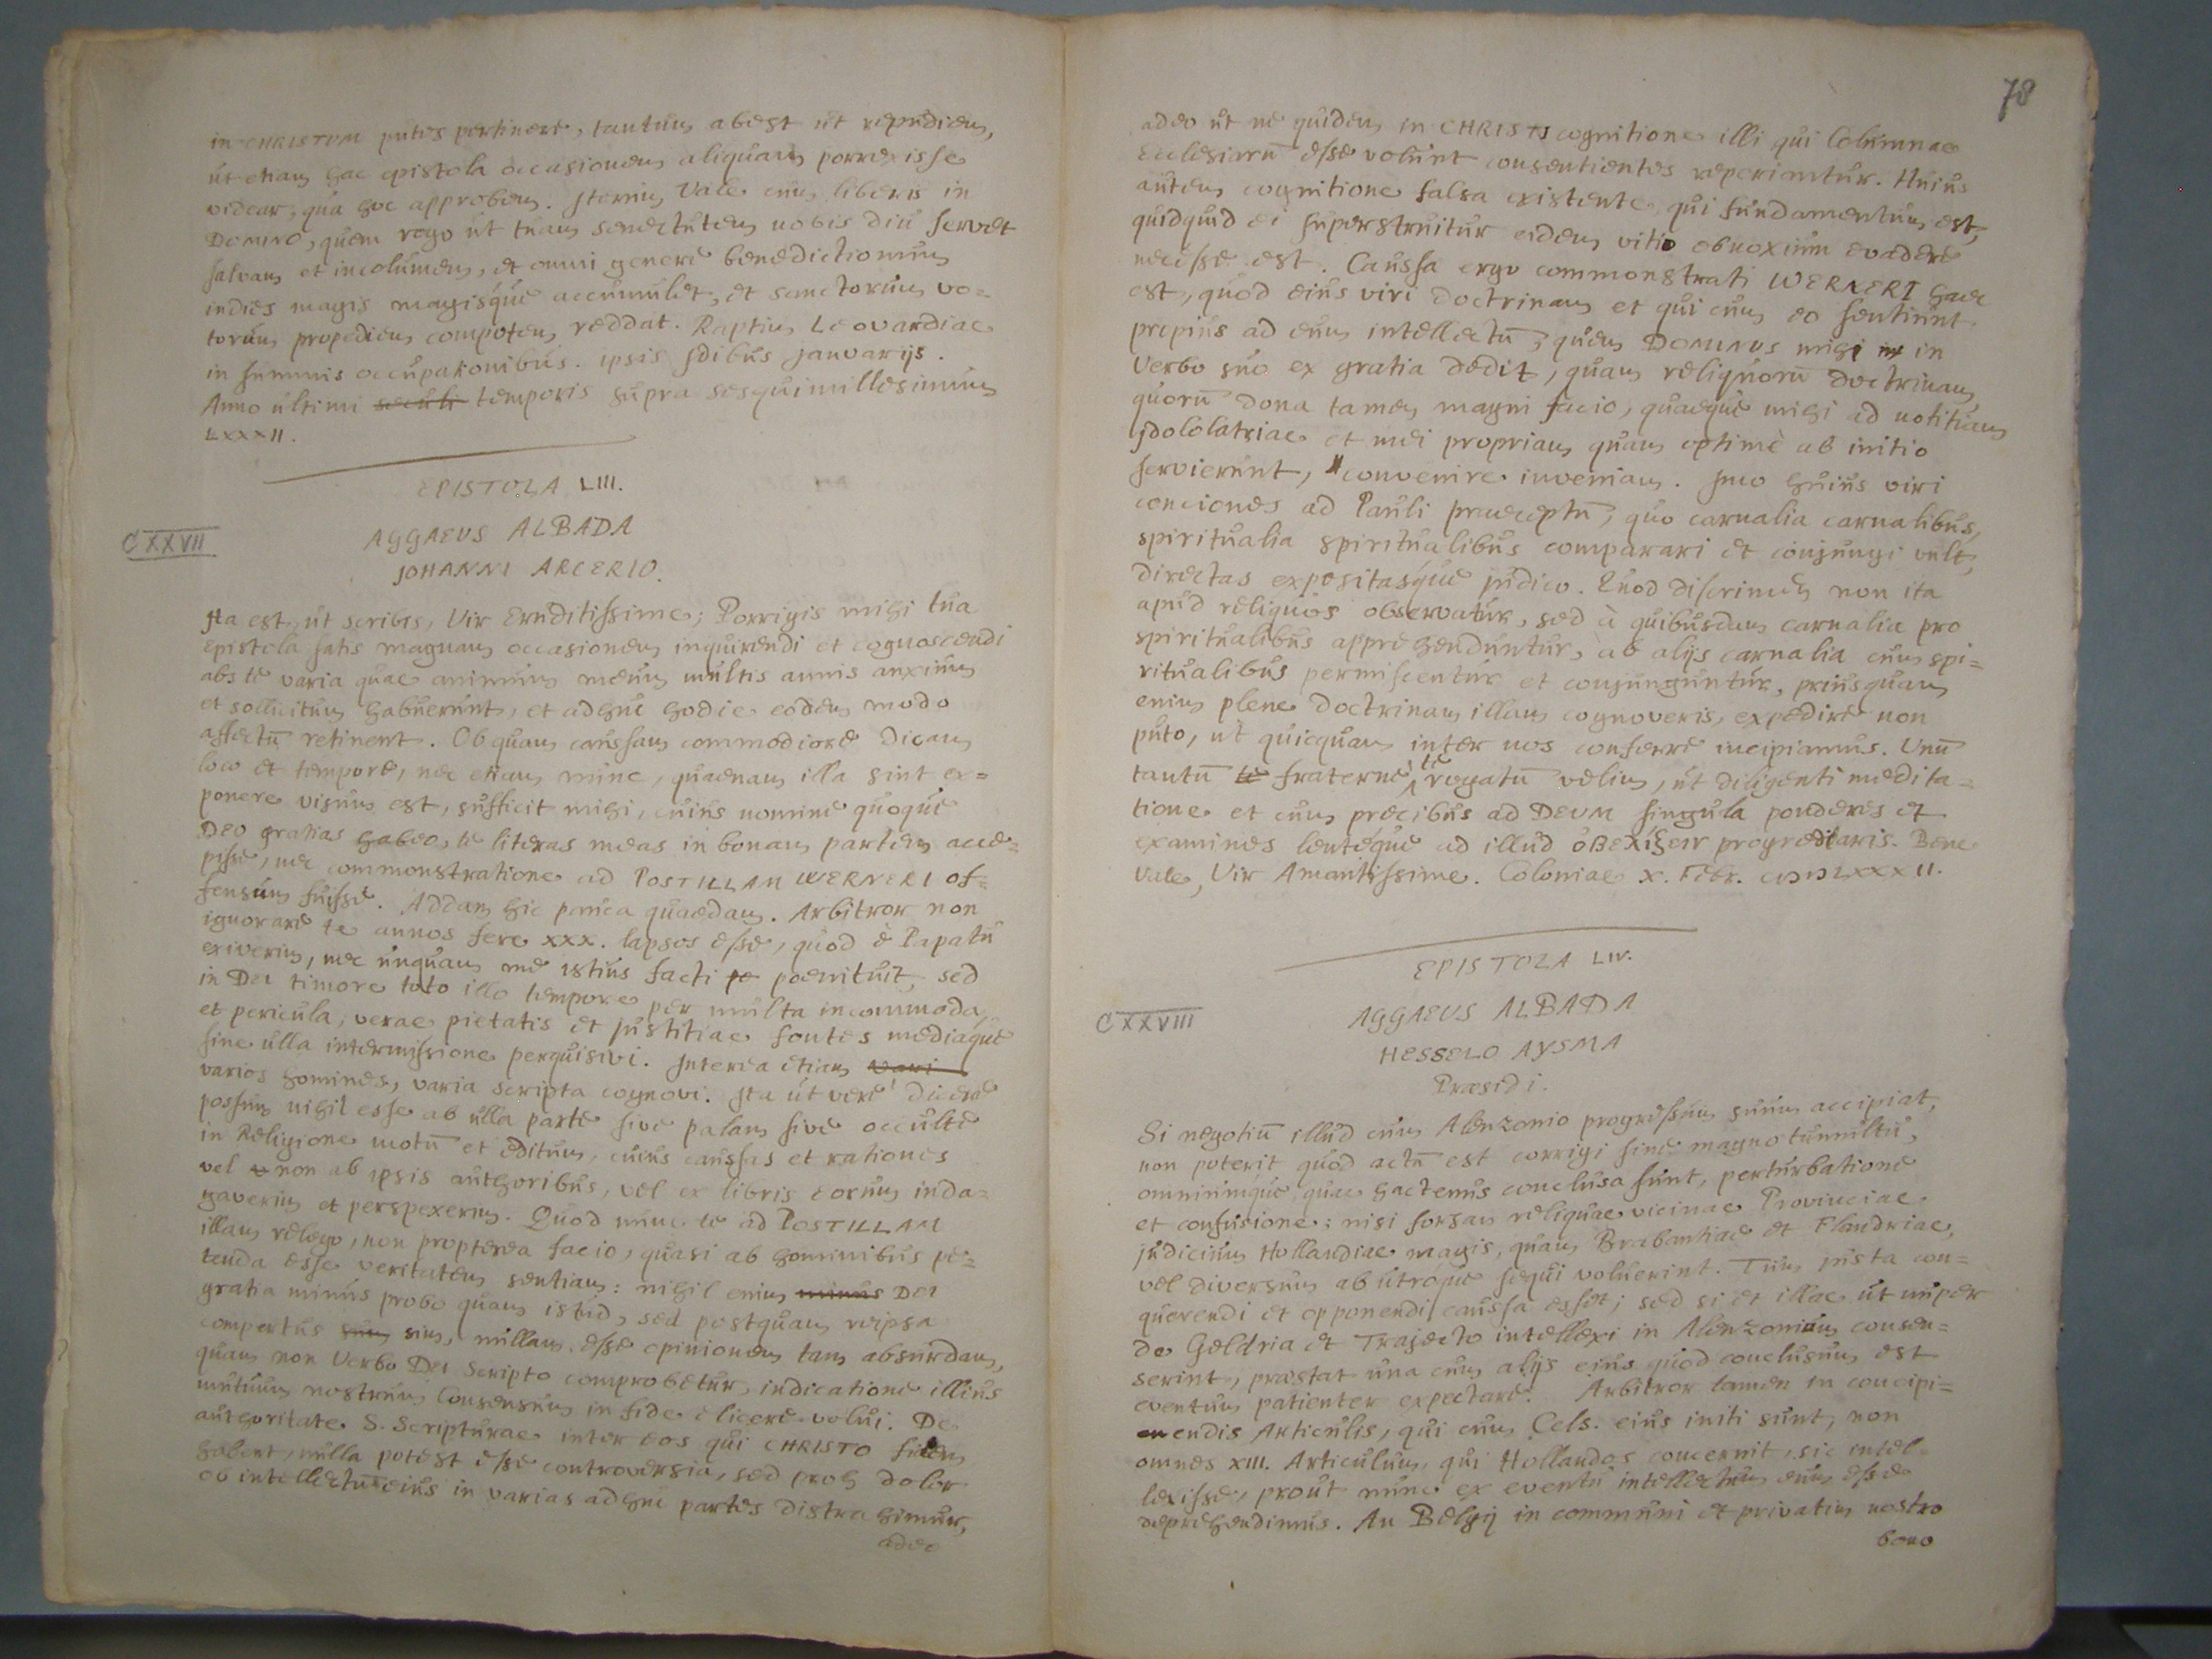 in CHRISTUM putes pertinere, tantum abest ut repudiem,
ut etiam hac epistola occasionem aliquam porrexisse
videar, qua hoc approbem. Iterum Vale cum liberis in
DOMINO, quem rogo ut tuam senectutem nobis diu servet
salvam et incolumem, et omni genere benedictionum
indies magis magisque accumulet, et sanctorum vo=
torum propediem compotem reddat. Raptim Leovardiae
in summis occupationibus. ipsis Idibus Januarijs.
Anno ultimi seculi temporis supra sesquimillesimum
LXXXII.
EPISTOLA LIII.
CXXVII
AGGAEUS ALBADA
JOHANNI ARCERIO.
Ita est, ut scribis, Vir Eruditissime; Porrigis mihi tua
epistola satis magnam occasionem inquirendi et cognoscendi
abs te varia quae animum meum multis annis anxium
et sollicitum habuerunt, et adhuc hodie eodem modo
affectū retinent. Ob quam caussam commodiore dicam
loco et tempore, nec etiam nunc, quaenam illa sint ex=
ponere visum est, sufficit mihi, cuius nomine quoque
DEO gratias habeo, te literas meas in bonam partem acce=
pisse, nec commonstratione ad POSTILLAM WERNERI of=
fensum fuisse. Addam hic pauca quaedam. Arbitror non
ignorare te annos fere XXX. lapsos esse, quod è Papatu
exiverim, nec unquam me istius facti pe poenituit, sed
in DEI timore toto illo tempore per multa incommoda
et pericula, verae pietatis et justitiae fontes mediaque
sine ulla intermissione perquisivi. Interea etiam vari
varios homines, varia scripta cognovi. Ita ut verè dicere
possum nihil esse ab ulla parte sive palam sive occulte
in Religione motū et editum, cuius caussas et rationes
vel non ab ipsis authoribus, vel ex libris eorum inda=
gaverim et perspexerim. Quod nunc te ad POSTILLAM
illam relego, non propterea facio, quasi ab hominibus pe=
tenda esse veritatem sentiam: nihil enim minus DEI
gratia minus probo quam istud, sed postquam reipsa
compertus sum sim, nullam esse opinionem tam absurdam,
quam non Verbo DEI Scripto comprobetur, indicatione illius
mutuum nostrum Consensum in fide elicere volui. De
authoritate S. Scripturae inter eos qui CHRISTO fidem
habent, nulla potest esse controversia, sed proh dolor
eo intellectu eius in varias adhuc partes distrahimur,
adeo
78
adeo ut ne quidem in CHRISTI cognitione illi qui Columnae
Ecclesiarū esse volunt consentientes reperiantur. Huius
autem cognitione falsa existente, qui fundamentum est,
quidquid ei superstruitur eidem vitio obnoxium evadere
necesse est. Caussa ergo commonstrati WERNERI haec
est, quod eius viri doctrinam et qui cum eo sentiunt
propius ad eum intellectū, quem DOMINUS mihi in
Verbo suo ex gratia dedit, quam reliquorū doctrinam
quorū dona tamen magni facio, quaeque mihi ad notitiam
Idololatriae et mei propriam quam optimè ab initio
servierunt, convenire inveniam. Imo huius viri
conciones ad Pauli praeceptū, quo carnalia carnalibus,
spiritualia spiritualibus comparari et conjungi vult,
directas expositasque judico. Quod discrimen non ita
apud reliquos observatur, sed à quibusdam carnalia pro
spiritualibus apprehenduntur, ab alijs carnalia cum spi=
ritualibus permiscentur et conjunguntur, priusquam
enim plene doctrinam illam cognoveris, expedire non
puto, ut quicquam inter nos conferre incipiamus. Unū
tantū te fraternè te rogatū velim, ut diligenti medita=
tione et cum precibus ad DEUM singula ponderes et
examines lentéque ad illud ὀβελίζειν progrediaris. Bene
Vale, Vir Amantissime. Coloniae X. Febr. CIƆIƆLXXXII.
EPISTOLA LIV.
CXXVIII
AGGAEUS ALBADA
HESSELO AYSMA
Praesidi.
Si negotiū illud cum Alenzonio progressum suum accipiat,
non poterit quod actū est corrigi sine magno tumultu,
omniumque, quae hactenus conclusa sunt, perturbatione
et confusione: nisi forsan reliquae vicinae Provinciae
judicium Hollandiae magis, quam Brabantiae et Flandriae,
vel diversum ab utroque sequi voluerint. Tum justa con=
querendi et opponendi caussa esset; sed si et illae ut nuper
de Geldria et Trajecto intellexi in Alenzonium consen=
serint, praestat una cum alijs eius quod conclusum est
eventum patienter expectare. Arbitror tamen in concipi=
endis Articulis, qui cum Cels. eius initi sunt, non
omnes XIII. Articulum, qui Hollandos concernit, sic intel=
lexisse, prout nunc ex eventu intellectum eum esse
deprehendimus. An Belgij in communi et privatim nostro
bono